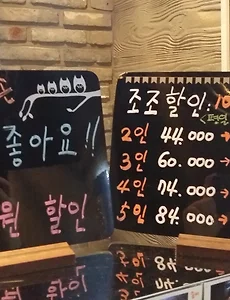 좋아요!!
원 할인
조조할인:10
<평일
2인 44.000→
3인 60.000→
4인 74.000→
5인 84.000→